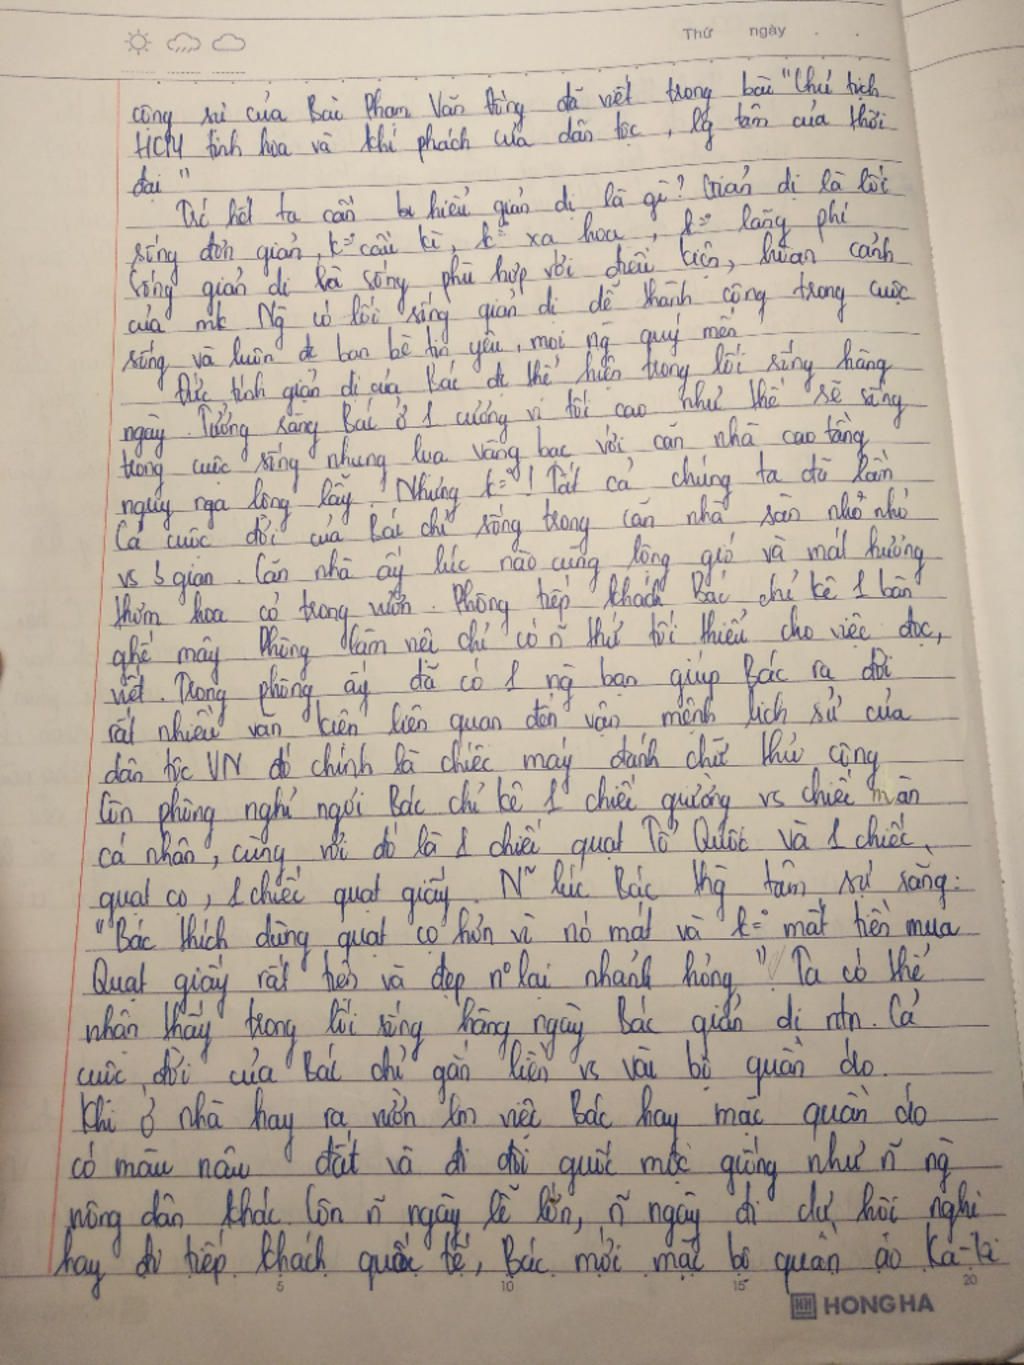 Thứ ngày
cộng sự của Bác Phạm Văn Đồng đã viết trong bài "Chủ tịch
HCM tinh hoa và khí phách của dân tộc, lg tâm của thời
đại"
Trc hết ta cần hiểu giản dị là gì? Giản dị là lối
sống đơn giản, k° cầu kì, k° xa hoa, k° lãng phí
Sống giản dị là sống phù hợp với điều kiện, hoàn cảnh
của mk Ng có lối sống giản dị dễ thành công trong cuộc
sống và luôn đc bạn bè tin yêu, mọi ng quý mến
Đức tính giản dị của Bác đc thể hiện trong lối sống hằng
ngày. Tưởng rằng Bác ở 1 cương vị tối cao như thế sẽ sống
trong cuộc sống nhung lụa vàng bạc với căn nhà cao tầng
nguy nga lộng lẫy. Nhưng k°! Tất cả chúng ta đã lần
Cả cuộc đời của Bác chỉ sống trong căn nhà sàn nhỏ nhỏ
vs 3 gian. Căn nhà ấy lúc nào cũng lộng gió và mát hương
thơm hoa cỏ trong vườn. Phòng tiếp khách Bác chỉ kê 1 bàn
ghế mây Phòng làm việc chỉ có ñ thứ tối thiểu cho việc đọc,
viết. Trong phòng ấy đã có 1 ng bạn giúp Bác ra đời
rất nhiều văn kiện liên quan đến vận mệnh lịch sử của
dân tộc VN đó chính là chiếc máy đánh chữ thủ công
Còn phòng nghỉ ngơi Bác chỉ kê 1 chiếc giường vs chiếc màn
cá nhân, cùng với đó là 1 chiếc quạt Tổ Quốc và 1 chiếc
quạt cọ, 1 chiếc quạt giấy. N~ lúc Bác thg tâm sự rằng:
"Bác thích dùng quạt cọ hơn vì nó mát và k° mất tiền mua
Quạt giấy rất tiện và đẹp n° lại nhanh hỏng" Ta có thể
nhận thấy trong lối sống hằng ngày Bác giản dị ntn. Cả
cuộc đời của Bác chỉ gắn liền vs vài bộ quần áo.
Khi ở nhà hay ra vườn lm việc Bác hay mặc quần áo
có màu nâu đất và đi đôi guốc mộc giống như ñ ng
nông dân khác. Còn ñ ngày lễ lớn, ñ ngày đi dự hội nghị
hay đi tiếp khách quốc tế, Bác mới mặc bộ quần áo Ka-ki
5 10 15 20
HONG HA